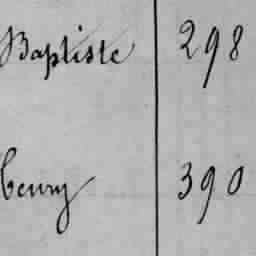 Baptiste 298
Henry 390